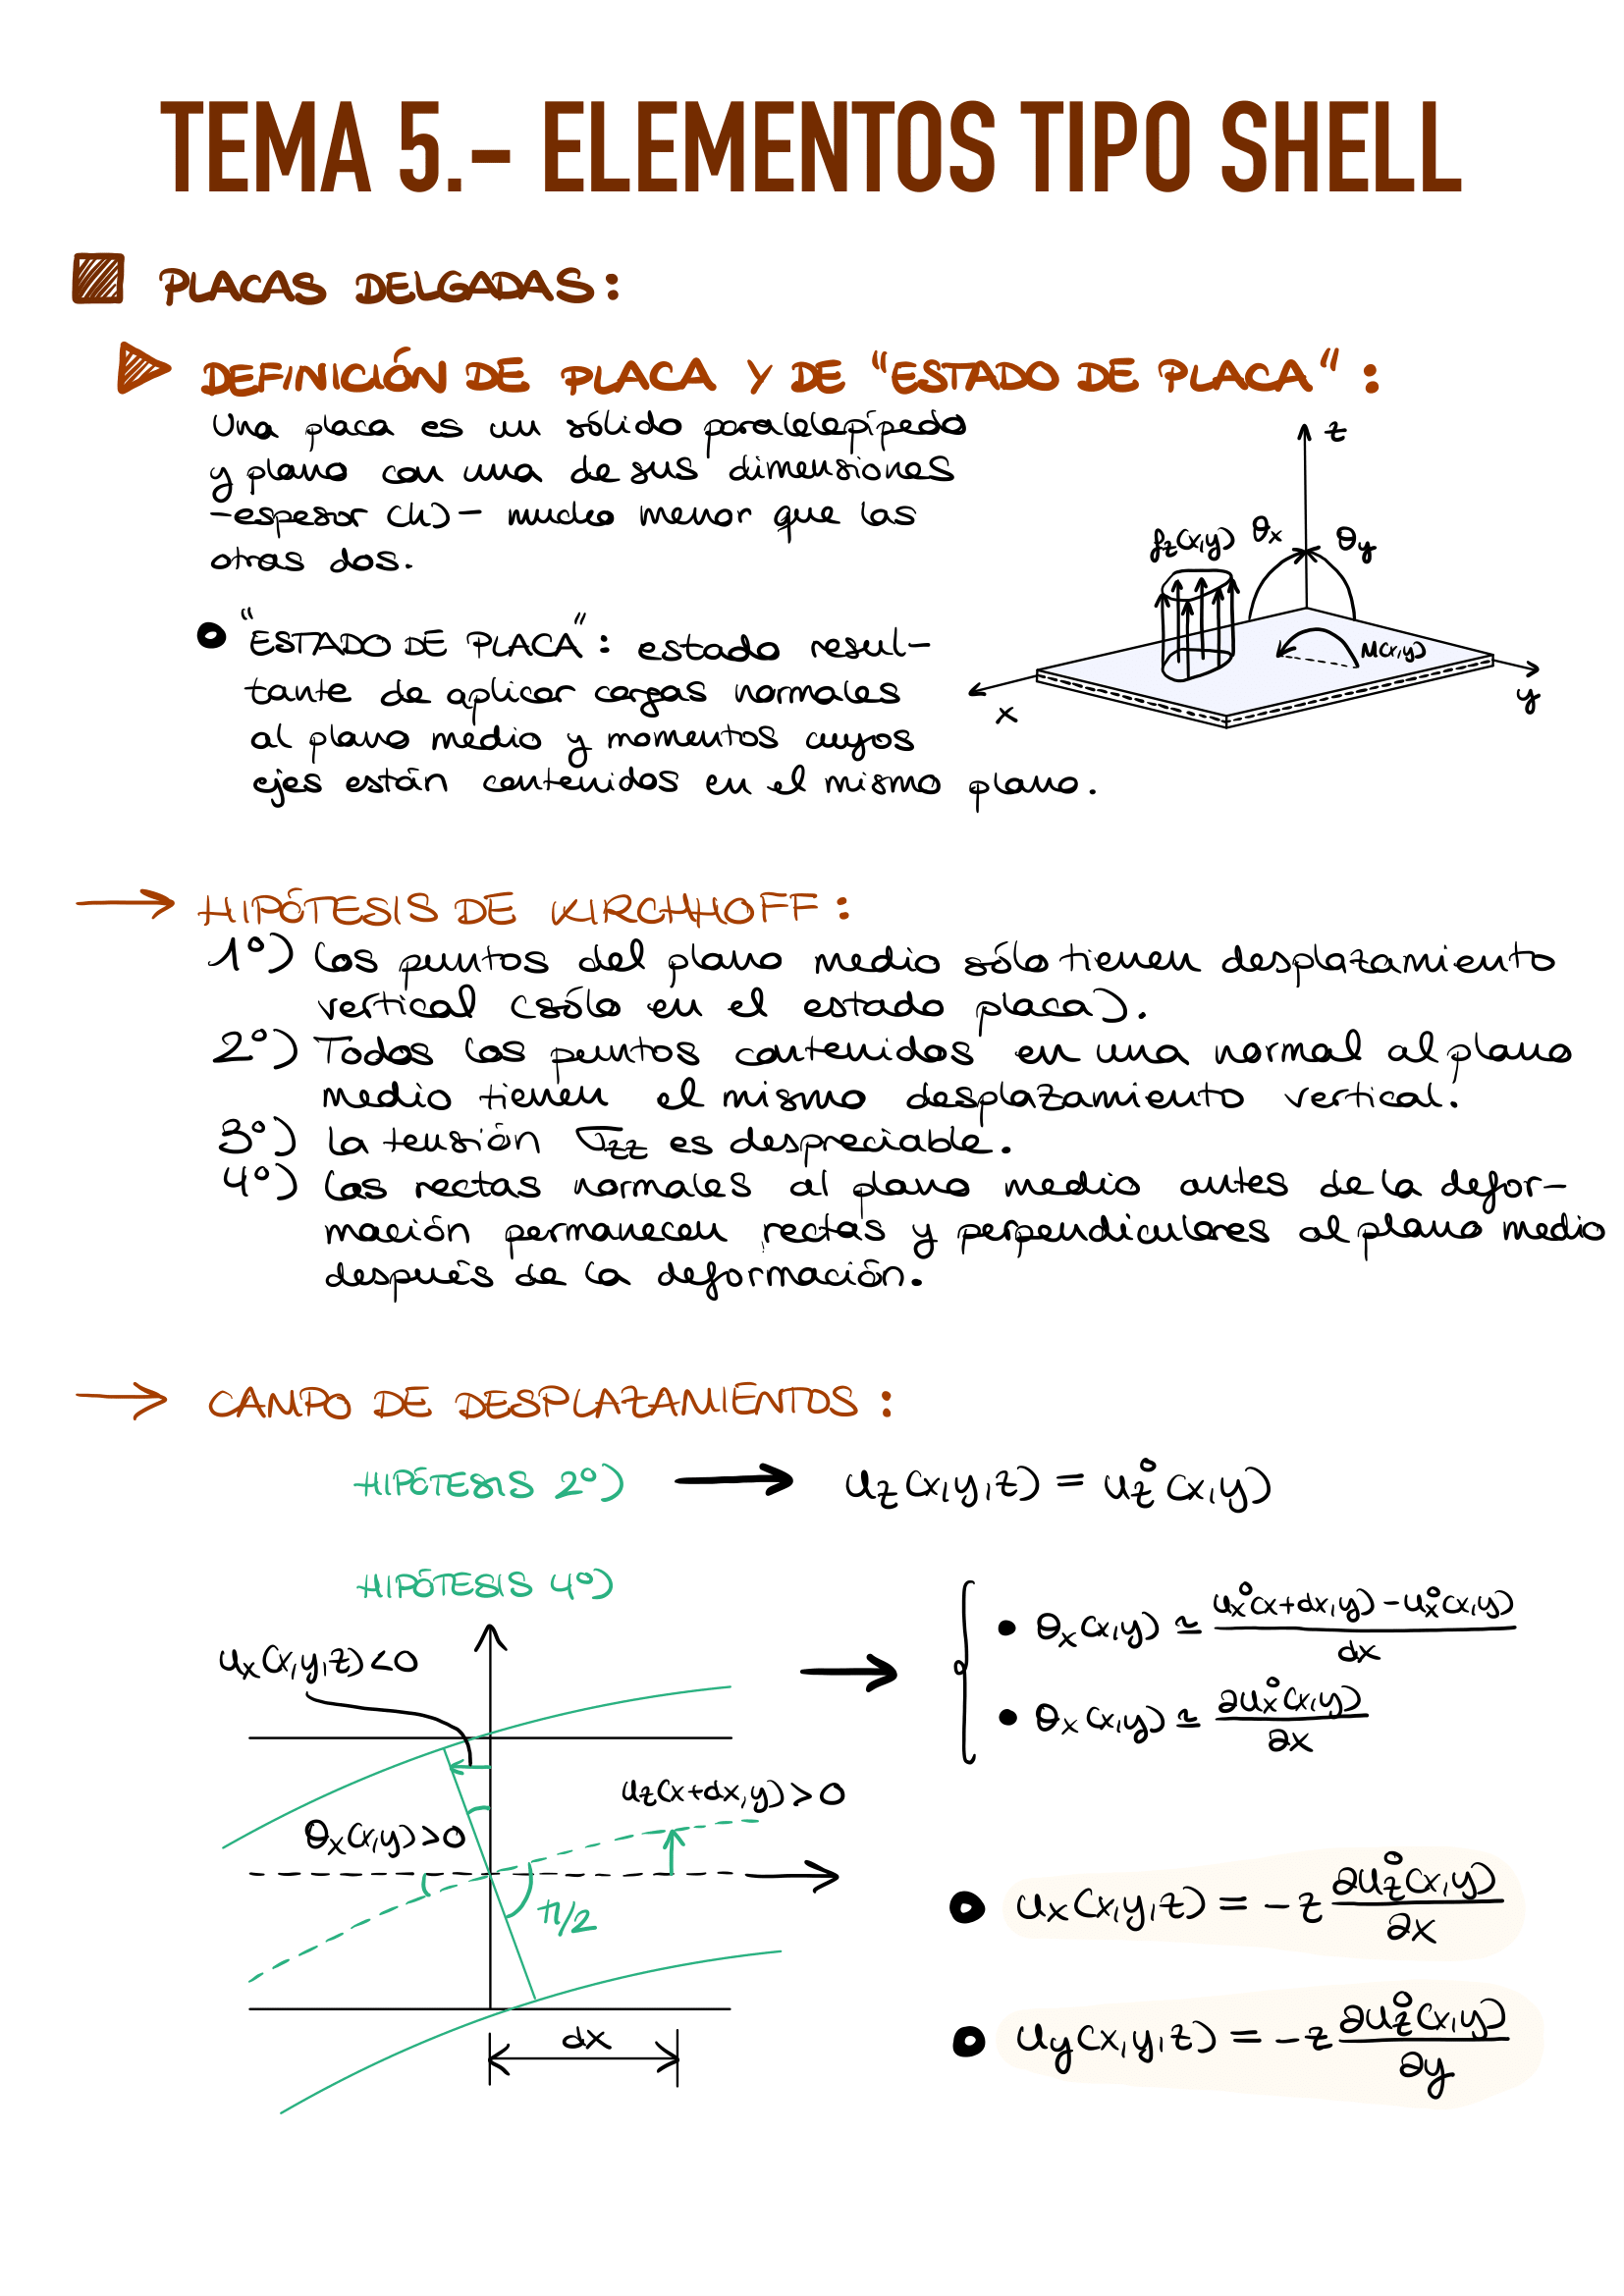 TEMA 5.- ELEMENTOS TIPO SHELL
PLACAS DELGADAS:
DEFINICIÓN DE PLACA Y DE "ESTADO DE PLACA":
Una placa es un sólido paralelepípedo
y plano con una de sus dimensiones
-espesor (h)- mucho menor que las
otras dos.
z
fz(x,y) θx θy
M(x,y)
x
y
"ESTADO DE PLACA": estado resul-
tante de aplicar cargas normales
al plano medio y momentos cuyos
ejes están contenidos en el mismo plano.
→ HIPÓTESIS DE KIRCHHOFF:
1º) Los puntos del plano medio sólo tienen desplazamiento
vertical (sólo en el estado placa).
2º) Todos los puntos contenidos en una normal al plano
medio tienen el mismo desplazamiento vertical.
3º) La tensión σzz es despreciable.
4º) Las rectas normales al plano medio antes de la defor-
mación permanecen rectas y perpendiculares al plano medio
después de la deformación.
→ CAMPO DE DESPLAZAMIENTOS:
HIPÓTESIS 2º) → uz(x,y,z) = uz⁰(x,y)
HIPÓTESIS 4º)
ux(x,y,z)<0
θx(x,y)>0
uz(x+dx,y)>0
π/2
dx
• θx(x,y) ≃ (ux⁰(x+dx,y) - ux⁰(x,y)) / dx
• θx(x,y) ≃ ∂ux⁰(x,y) / ∂x
ux(x,y,z) = -z ∂uz⁰(x,y) / ∂x
uy(x,y,z) = -z ∂uz⁰(x,y) / ∂y